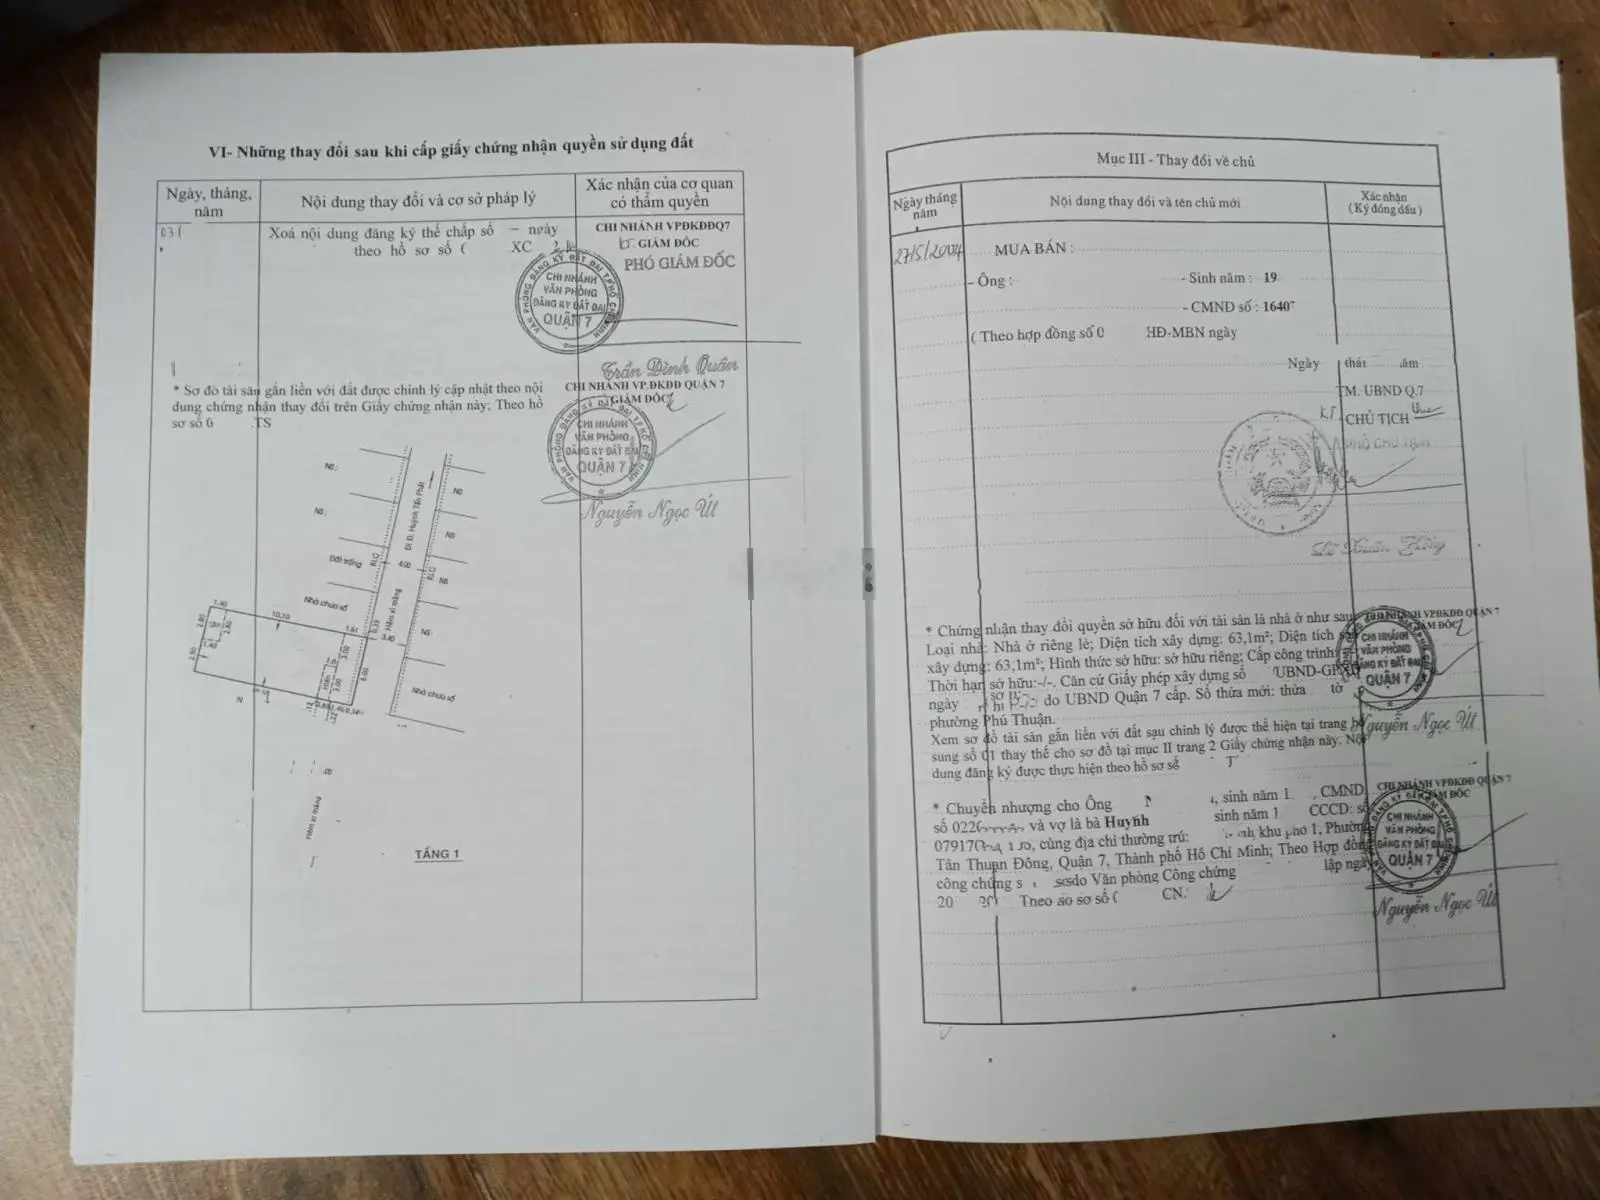 VI- Những thay đổi sau khi cấp giấy chứng nhận quyền sử dụng đất
Ngày, tháng, năm
Nội dung thay đổi và cơ sở pháp lý
Xác nhận của cơ quan có thẩm quyền
031
Xoá nội dung đăng ký thế chấp số – ngày
theo hồ sơ số ( XC
CHI NHÁNH VPĐKĐĐQ7
KT. GIÁM ĐỐC
PHÓ GIÁM ĐỐC
VĂN PHÒNG ĐĂNG KÝ ĐẤT ĐAI T.P HỒ CHÍ MINH
CHI NHÁNH
VĂN PHÒNG
ĐĂNG KÝ ĐẤT ĐAI
QUẬN 7
Trần Đình Quân
* Sơ đồ tài sản gắn liền với đất được chỉnh lý cập nhật theo nội
dung chứng nhận thay đổi trên Giấy chứng nhận này; Theo hồ
sơ số 0 .TS
CHI NHÁNH VP.ĐKĐĐ QUẬN 7
GIÁM ĐỐC
CHI NHÁNH
VĂN PHÒNG
ĐĂNG KÝ ĐẤT ĐAI
QUẬN 7
Nguyễn Ngọc Út
NS
NS
NS
NS
NS
NS
Đi Đ. Huỳnh Tấn Phát
Đất trống
RLG
4.00
RLG
Nhà chưa số
Hẻm xi măng
1.40
10.10
1.61
0.39
3.40
2.80
2.80
2.90
3.00
3.00
6.00
N
Nhà chưa số
Hẻm xi măng
TẦNG 1
Mục III - Thay đổi về chủ
Ngày tháng năm
Nội dung thay đổi và tên chủ mới
Xác nhận
(Ký đóng dấu)
27/5/2004
MUA BÁN :
- Ông : - Sinh năm : 19
- CMND số : 1640
( Theo hợp đồng số 0 HĐ-MBN ngày
Ngày
TM. UBND Q.7
KT. CHỦ TỊCH
PHÓ CHỦ TỊCH
* Chứng nhận thay đổi quyền sở hữu đối với tài sản là nhà ở như sau
Loại nhà: Nhà ở riêng lẻ; Diện tích xây dựng: 63,1m²; Diện tích
xây dựng: 63,1m²; Hình thức sở hữu: sở hữu riêng; Cấp công trình:
Thời hạn sở hữu:-/-. Căn cứ Giấy phép xây dựng số UBND-GPXD
ngày do UBND Quận 7 cấp. Số thửa mới: thửa tờ
phường Phú Thuận.
Xem sơ đồ tài sản gắn liền với đất sau chỉnh lý được thể hiện tại trang bổ
sung số 01 thay thế cho sơ đồ tại mục II trang 2 Giấy chứng nhận này. Nội
dung đăng ký được thực hiện theo hồ sơ số T
CHI NHÁNH VPĐKĐĐ QUẬN 7
GIÁM ĐỐC
CHI NHÁNH
VĂN PHÒNG
ĐĂNG KÝ ĐẤT ĐAI
QUẬN 7
Nguyễn Ngọc Út
* Chuyển nhượng cho Ông , sinh năm 1 , CMND
số 022 và vợ là bà Huỳnh sinh năm 1 CCCD: số
07917 , cùng địa chỉ thường trú: khu phố 1, Phường
Tân Thuận Đông, Quận 7, Thành phố Hồ Chí Minh; Theo Hợp đồng
công chứng s do Văn phòng Công chứng lập ngày
20 Theo hồ sơ số ( CN.
CHI NHÁNH VPĐKĐĐ QUẬN 7
GIÁM ĐỐC
CHI NHÁNH
VĂN PHÒNG
ĐĂNG KÝ ĐẤT ĐAI
QUẬN 7
Nguyễn Ngọc Út